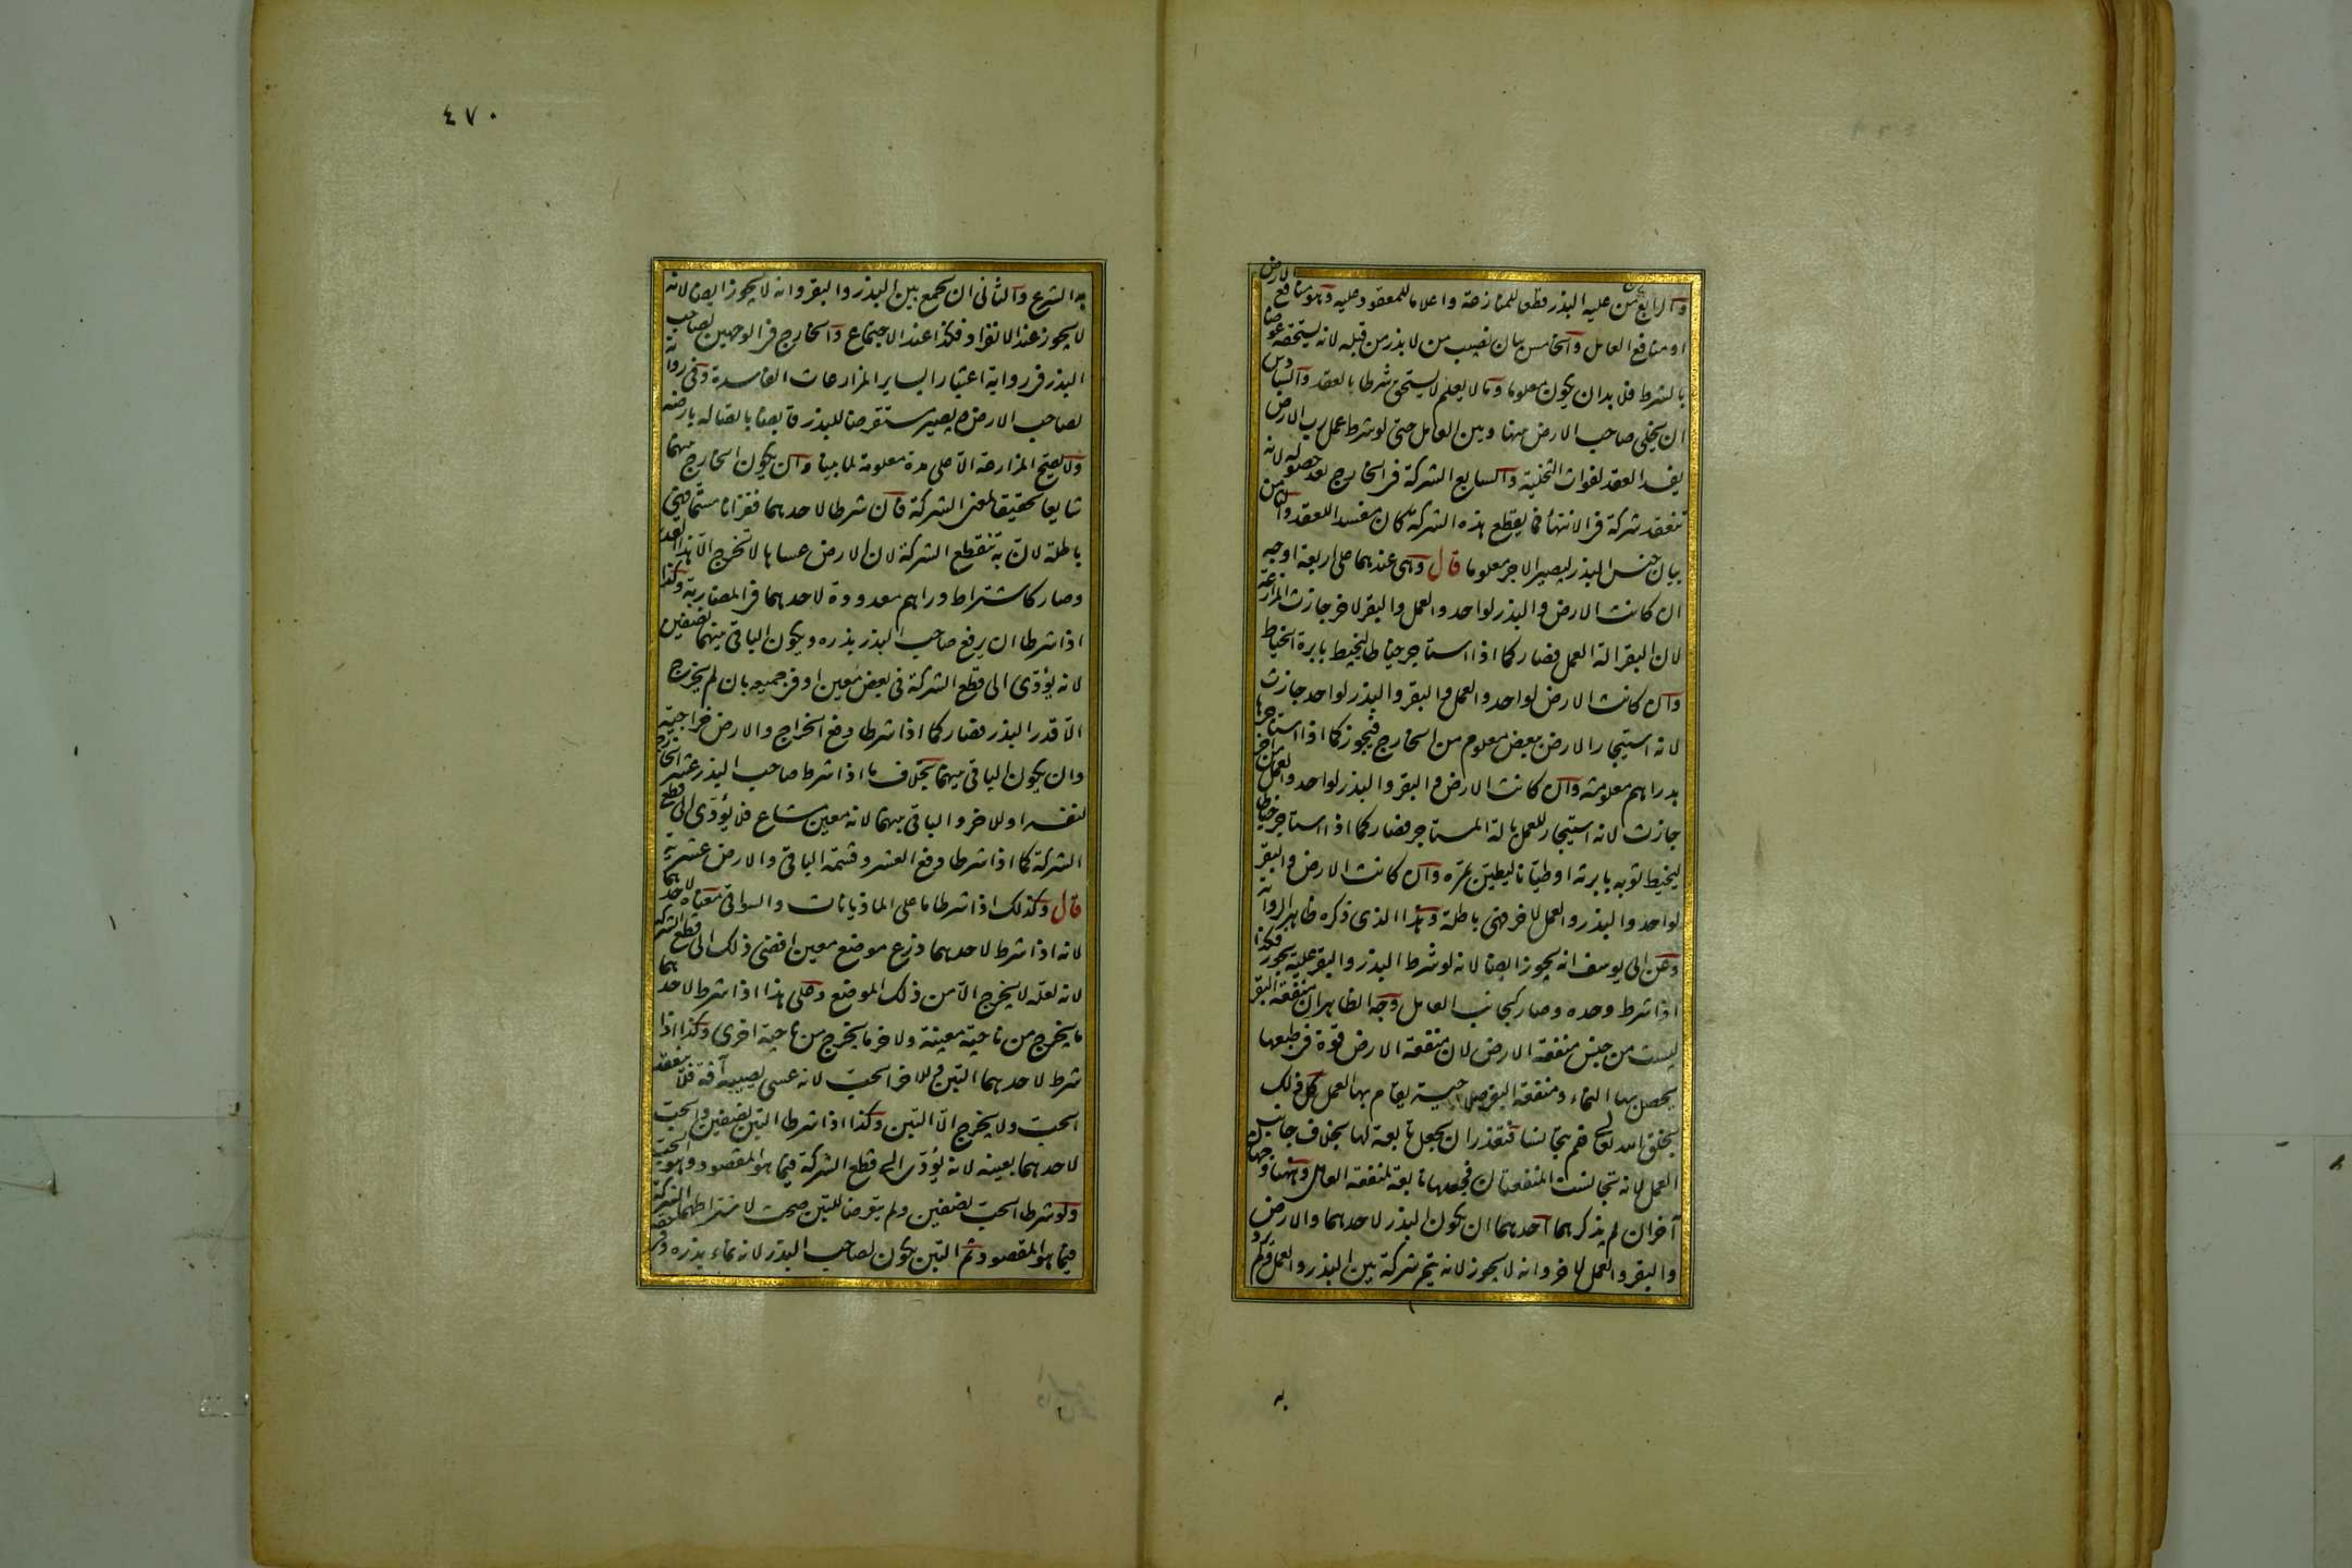 والرابع بيان من عليه البذر قطعا للمنازعة واعلاما للمعقود عليه وهو منافع الارض
او منافع العامل والخامس بيان نصيب من لا بذر من قبله لانه يستحقه عوضا
بالشرط فلا بد ان يكون معلوما وما لا يعلم لا يستحق شرطا بالعقد والسادس
ان يخلى صاحب الارض بينها وبين العامل حتى لو شرط عمل رب الارض
يفسد العقد لفوات التخلية والسابع الشركة فى الخارج بعد حصوله لانه
ينعقد شركة فى الانتهاء فما يقطع هذه الشركة كان مفسدا للعقد والثامن
بيان جنس البذر ليصير الاجر معلوما قال وهى عندهما على اربعة اوجه
ان كانت الارض والبذر لواحد والعمل والبقر لاخر جازت المزارعة
لان البقر الة العمل فصار كما اذا استاجر خياطا ليخيط بابرة الخياط
وان كانت الارض لواحد والعمل والبقر والبذر لواحد جازت
لانه استيجار الارض ببعض معلوم من الخارج فيجوز كما اذا استاجرها
بدراهم معلومة وان كانت الارض والبقر والبذر لواحد والعمل من اخر
جازت لانه استيجار للعمل بالة المستاجر فصار كما اذا استاجر خياطا
ليخيط ثوبه بابرته او طيانا ليطين بمره وان كانت الارض والبقر
لواحد والبذر والعمل لاخر فهى باطلة وهذا الذى ذكره ظاهر الرواية
وعن ابى يوسف انه يجوز ايضا لانه لو شرط البذر والبقر عليه يجوز فكذا
اذا شرط وحده وصار كجانب العامل وجه الظاهر ان منفعة البقر
ليست من جنس منفعة الارض لان منفعة الارض قوة فى طبعها
يحصل بها النماء ومنفعة البقر صلاحية يقام بها العمل كل ذلك
بخلق الله تعالى فلم يتجانسا فتعذر ان يجعل تابعة لها بخلاف جانب
العمل لانه تجانست المنفعتان فجعلها تابعة لمنفعة العامل وههنا وجهان
آخران لم يذكرهما احدهما ان يكون البذر لاحدهما والارض
والبقر والعمل لاخر وانه لا يجوز لانه يتم شركة بين البذر والعمل ولم يرد
به
٤٧٠
به الشرع والثانى ان يجمع بين البذر والبقر وانه لا يجوز ايضا لانه
لا يجوز عند الانفراد فكذا عند الاجتماع والخارج فى الوجهين لصاحب
البذر فى رواية اعتبارا بساير المزارعات الفاسدة وفى رواية
لصاحب الارض ويصير مستقرضا للبذر قابضا باتصاله بارضه
ولا يصح المزارعة الا على مدة معلومة لما بينا وان يكون الخارج بينهما
شايعا تحقيقا لمعنى الشركة فان شرطا لاحدهما قفزانا مسماة فهى
باطلة لان به تنقطع الشركة لان الارض عساها لا تخرج الا هذا القدر
وصار كاشتراط دراهم معدودة لاحدهما فى المضاربة وكذا
اذا شرطا ان يرفع صاحب البذر بذره ويكون الباقى بينهما نصفين
لانه يؤدى الى قطع الشركة فى بعض معين او فى جميعه بان لم يخرج
الا قدر البذر فصار كما اذا شرطا رفع الخراج والارض خراجية
وان يكون الباقى بينهما بخلاف ما اذا شرط صاحب البذر عشر الخارج
لنفسه او للاخر والباقى بينهما لانه معين مشاع فلا يؤدى الى قطع
الشركة كما اذا شرطا رفع العشر وقسمة الباقى والارض عشرية
قال وكذلك اذا شرطا ما على الماذيانات والسواقى معناه لاحدهما
لانه اذا شرط لاحدهما زرع موضع معين افضى ذلك الى قطع الشركة
لانه لعله لا يخرج الا من ذلك الموضع وعلى هذا اذا شرط لاحدهما
ما يخرج من ناحية معينة ولاخر ما يخرج من ناحية اخرى وكذا اذا
شرط لاحدهما التبن وللاخر الحب لانه عسى يصيبه آفة فلا ينعقد
الحب ولا يخرج الا التبن وكذا اذا شرطا التبن نصفين والحب
لاحدهما بعينه لانه يؤدى الى قطع الشركة فيما هو المقصود وهو الحب
ولو شرط الحب نصفين ولم يتعرضا للتبن صحت لاشتراطهما الشركة
فيما هو المقصود ثم التبن يكون لصاحب البذر لانه نماء بذره وفى حقه